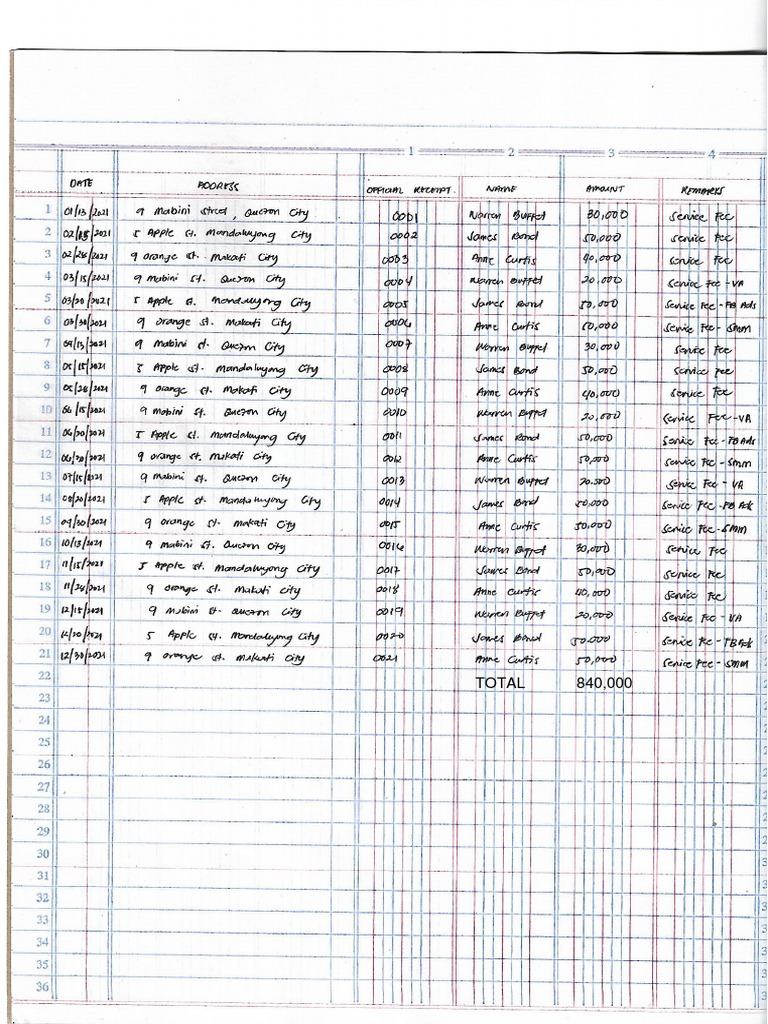 1 2 3 4
DATE ADDRESS OFFICIAL RECEIPT. NAME AMOUNT REMARKS
1 01/13/2021 9 Mabini Street, Quezon City 0001 Warren Buffet 30,000 Service Fee
2 02/15/2021 5 Apple St. Mandaluyong City 0002 James Bond 50,000 Service Fee
3 02/28/2021 9 orange st. Makati City 0003 Anne Curtis 40,000 Service Fee
4 03/15/2021 9 Mabini St. Quezon City 0004 Warren Buffet 20,000 Service Fee - VA
5 03/20/2021 5 Apple st. Mandaluyong City 0005 James Bond 50,000 Service Fee - FB Ads
6 03/30/2021 9 orange st. Makati City 0006 Anne Curtis 50,000 Service Fee - SMM
7 04/13/2021 9 Mabini st. Quezon City 0007 Warren Buffet 30,000 Service Fee
8 05/15/2021 5 Apple st. Mandaluyong City 0008 James Bond 50,000 Service Fee
9 05/28/2021 9 orange st. Makati City 0009 Anne Curtis 40,000 Service Fee
10 06/15/2021 9 Mabini St. Quezon City 0010 Warren Buffet 20,000 Service Fee - VA
11 06/20/2021 5 Apple st. Mandaluyong City 0011 James Bond 50,000 Service Fee - FB Ads
12 06/30/2021 9 orange st. Makati City 0012 Anne Curtis 50,000 Service Fee - SMM
13 07/15/2021 9 Mabini st. Quezon City 0013 Warren Buffet 20,000 Service Fee - VA
14 08/20/2021 5 Apple St. Mandaluyong City 0014 James Bond 50,000 Service Fee - FB Ads
15 09/30/2021 9 orange st. Makati City 0015 Anne Curtis 50,000 Service Fee - SMM
16 10/13/2021 9 Mabini st. Quezon City 0016 Warren Buffet 30,000 Service Fee
17 11/15/2021 5 Apple st. Mandaluyong City 0017 James Bond 50,000 Service Fee
18 11/28/2021 9 orange st. Makati City 0018 Anne Curtis 40,000 Service Fee
19 12/15/2021 9 Mabini st. Quezon City 0019 Warren Buffet 20,000 Service Fee - VA
20 12/20/2021 5 Apple st. Mandaluyong City 0020 James Bond 50,000 Service Fee - FB Ads
21 12/30/2021 9 orange st. Makati City 0021 Anne Curtis 50,000 Service Fee - SMM
22 TOTAL 840,000
23
24
25
26
27
28
29
30
31
32
33
34
35
36